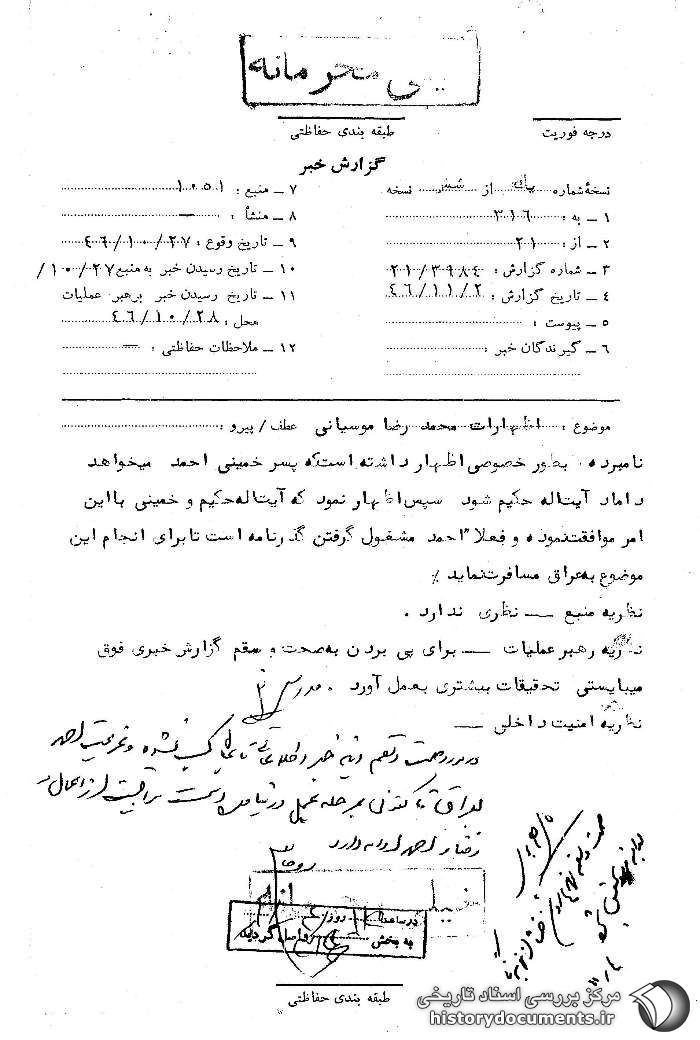 محرمانه
درجه فوریت
طبقه بندی حفاظتی
گزارش خبر
نسخهٔ شماره یک از شش نسخه
۱ ـ به : ۳۱۶
۲ ـ از : ۲۱
۳ ـ شماره گزارش : ۲۱/۳۹۸۴
۴ ـ تاریخ گزارش : ۴۶/۱۱/۲
۵ ـ پیوست :
۶ ـ گیرندگان خبر :
۷ ـ منبع : ۱۰۵۱
۸ ـ منشأ : —
۹ ـ تاریخ وقوع : ۴۶/۱۰/۲۷
۱۰ ـ تاریخ رسیدن خبر به منبع ۱۰/۲۷/
۱۱ ـ تاریخ رسیدن خبر برهبر عملیات
محل : ۴۶/۱۰/۲۸
۱۲ ـ ملاحظات حفاظتی : —
موضوع : اظهارات محمد رضا موسیانی عطف / پیرو :
نامبرده بطور خصوصی اظهار داشته است که پسر خمینی احمد میخواهد
داماد آیت اله حکیم شود سپس اظهار نمود که آیت اله حکیم و خمینی با این
امر موافقت نموده و فعلا" احمد مشغول گرفتن گذرنامه است تا برای انجام این
موضوع به عراق مسافرت نماید ٪
نظریه منبع — نظری ندارد .
نظریه رهبر عملیات — برای پی بردن به صحت و سقم گزارش خبری فوق
میبایستی تحقیقات بیشتری بعمل آورد . مدرسی
نظریه امنیت داخلی —
در مورد صحت و سقم این خبر اطلاعاتی تا بحال کسب نشده و عزیمت احمد
بعراق تا کنون بمرحله عمل در نیامده است مراقبت از اعمال و
رفتار احمد ادامه دارد
در ساعت روز
به بخش واصل گردید
طبقه بندی حفاظتی
مرکز بررسی اسناد تاریخی
historydocuments.ir